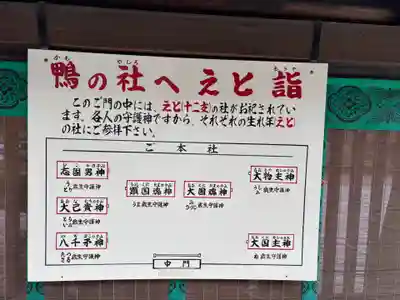 鴨の社へえと詣
このご門の中には、えと(十二支)の社がお祀されてい
ます。各人の守護神ですから、それぞれの生れ年(えと)
の社にご参拝下さい。
ご本社
志固男神
うとり歳生守護神
大己貴神
とらいぬ歳生守護神
八千矛神
たつさる歳生守護神
顕国魂神
うま歳生守護神
大国魂神
みひつじ歳生守護神
大物主神
うしい歳生守護神
大国主神
ね歳生守護神
中門